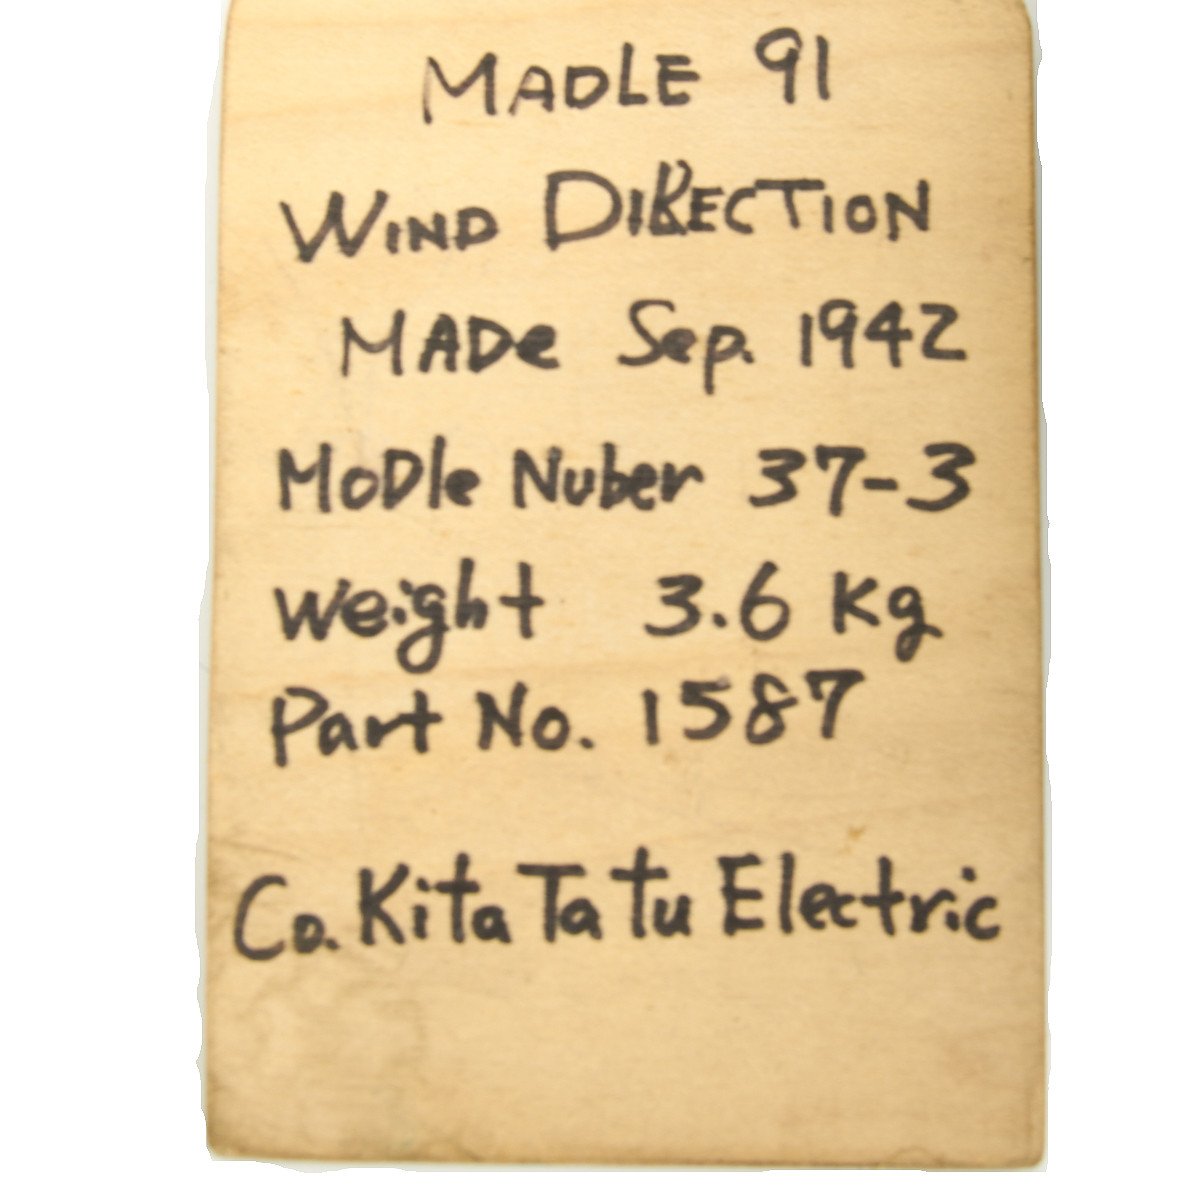 MADLE 91
WIND DIRECTION
MADe Sep. 1942
MoDle Nuber 37-3
weight 3.6 Kg
Part No. 1587
Co. Kita Ta tu Electric